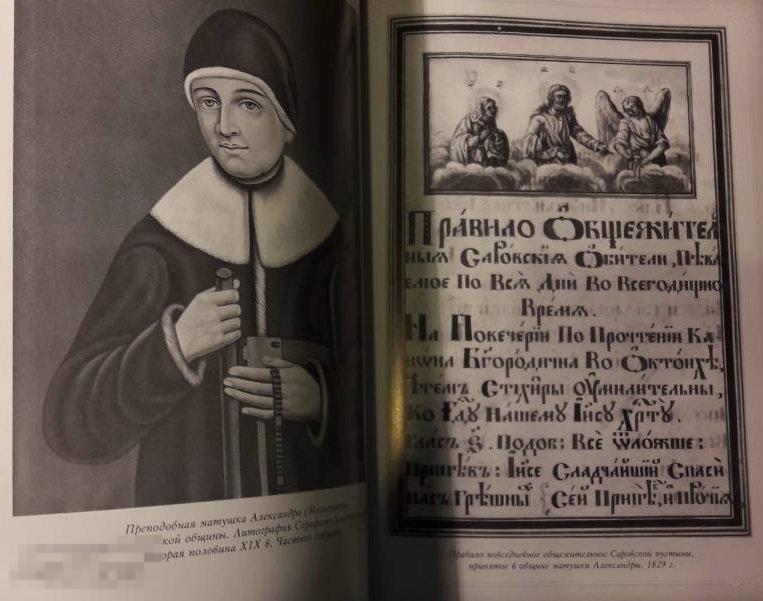 Преподобная матушка Александра
кой общины. Литография
орая половина XIX в. Частное
Пра́вило Ѻбщежител
ныѧ Саро́вскїѧ Ѻби́тели, Пѣва
емое По Всѧ̑ Дни̑ Во Всего́дищно
Вре́мѧ.
На Повече́рїи По Прочте́нїи Ка
но́на Бг҃оро́дична Во Ѻкто́ихѣ,
Стїхи̑ры Оумили́тельны,
Ко Гдⷭ҇у На́шемꙋ Їи҃сꙋ Хрⷭ҇тꙋ̀.
Гласъ ѕ҃. Подо́в: Всѐ Ѿло́жше:
Припѣ́въ: Їи҃се Сладча́йшїй Спасѝ
насъ Грѣ́шныѧ Сей Припѣ́,
Правило повседневное общежительное Саровской пустыни,
принятое в общине матушки Александры. 1829 г.